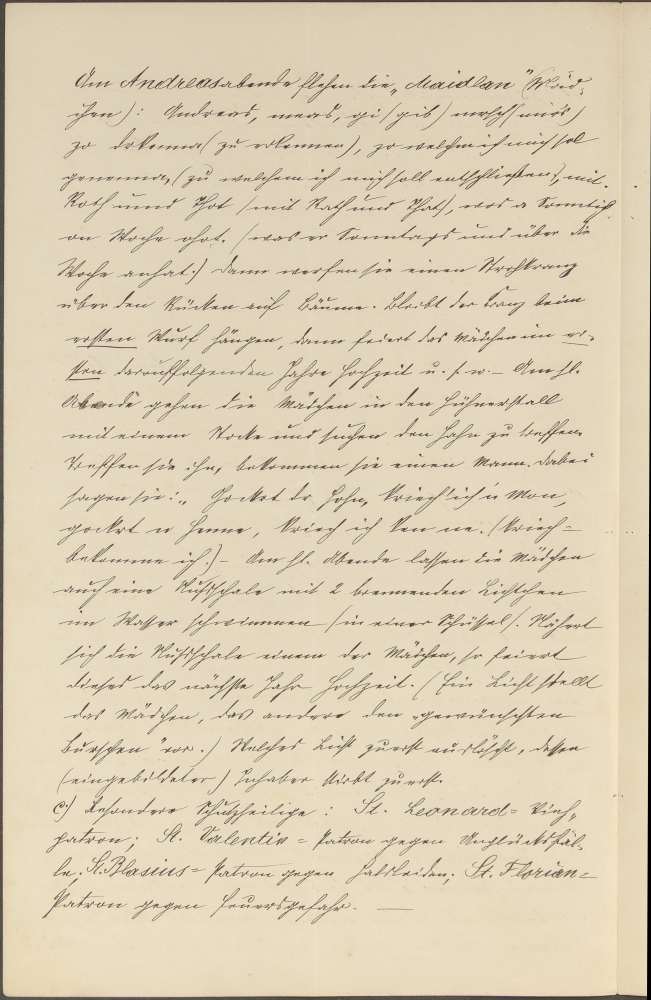 Am Andreasabende flehen die „Maidlan" (Mäd-
chen): Andreas, meas, gi (gib) mersch (mirs)
zo drkenna (zu erkennen), zo welchem ich mich sol
genemma, (zu welchem ich mich soll entschließen), mit
Roth und Thot (mit Rath und That), wos a Sonntich
on Woche ohot. (was er Sonntags und über die
Woche anhat.) Dann werfen sie einen Strohkranz
über den Rücken auf Bäume. Bleibt der Kranz beim
ersten Wurf hängen, dann feiert das Mädchen im er-
sten darauffolgenden Jahre Hochzeit u. s. w. – Am hl.
Abende gehen die Mädchen in den Hühnerstall
mit einem Stocke und suchen den Hahn zu treffen.
Treffen sie ihn, bekommen sie einen Mann. Dabei
sagen sie: „Gocket dr Hohn, kriech' ich 'n Mon,
gockrt de Henne, kriech ich ken ne. (kriech =
bekomme ich.) – Am hl. Abende lassen die Mädchen
auch eine Nußschale mit 2 brennenden Lichtchen
im Wasser schwimmen (in einer Schüssel). Nähert
sich die Nußschale einem der Mädchen, so feiert
dieses das nächste Jahr Hochzeit. (Ein Licht stellt
das Mädchen, das andere den „gewünschten
Burschen" vor.) Welches Licht zuerst auslöscht, dessen
(eingebildeter) Inhaber stirbt zuerst.
c) Besondere Schutzheilige: St. Leonard = Vieh-
patron; St. Valentin = Patron gegen Unglücksfäl-
le; St. Blasius = Patron gegen Halsleiden; St. Florian =
Patron gegen Feuersgefahr. —